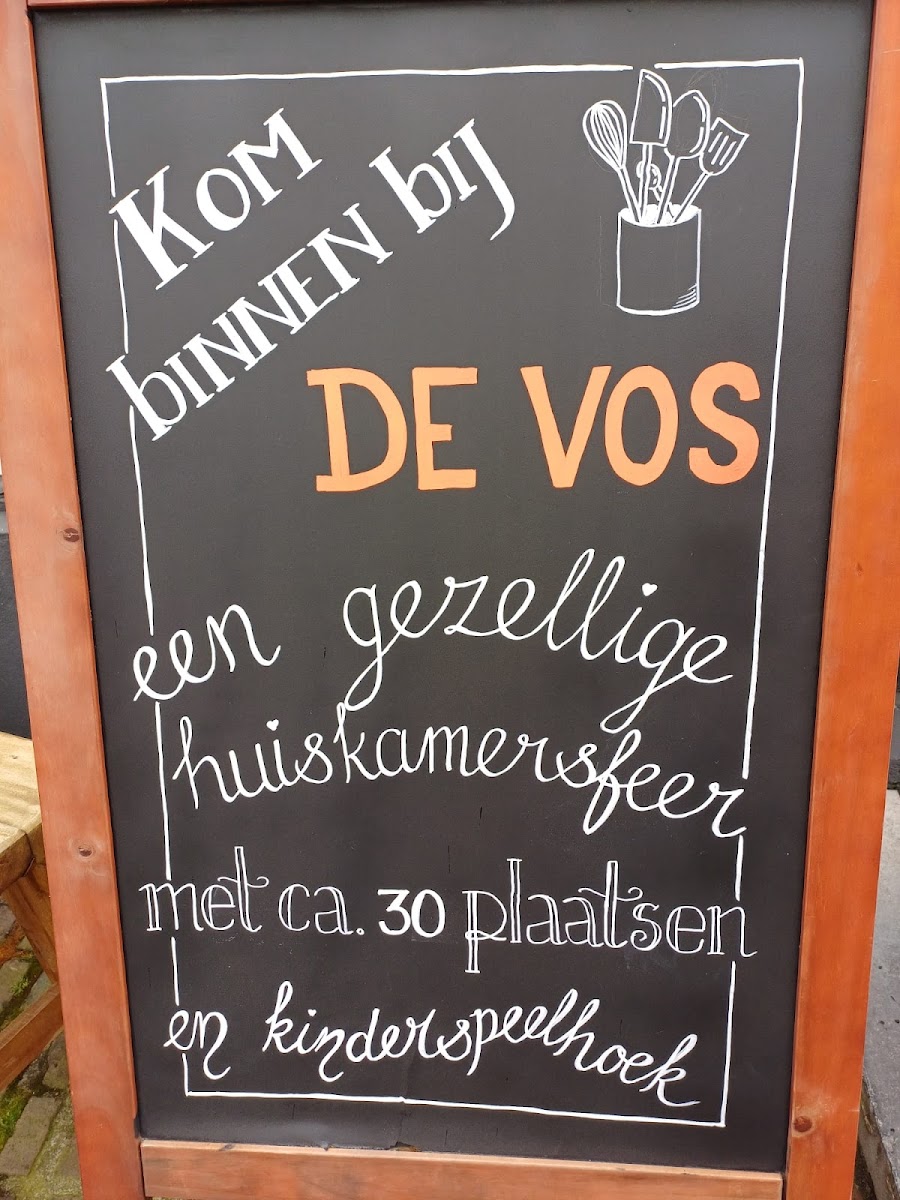 Kom
binnen bij
DE VOS
een gezellige
huiskamersfeer
met ca. 30 plaatsen
en kinderspeelhoek